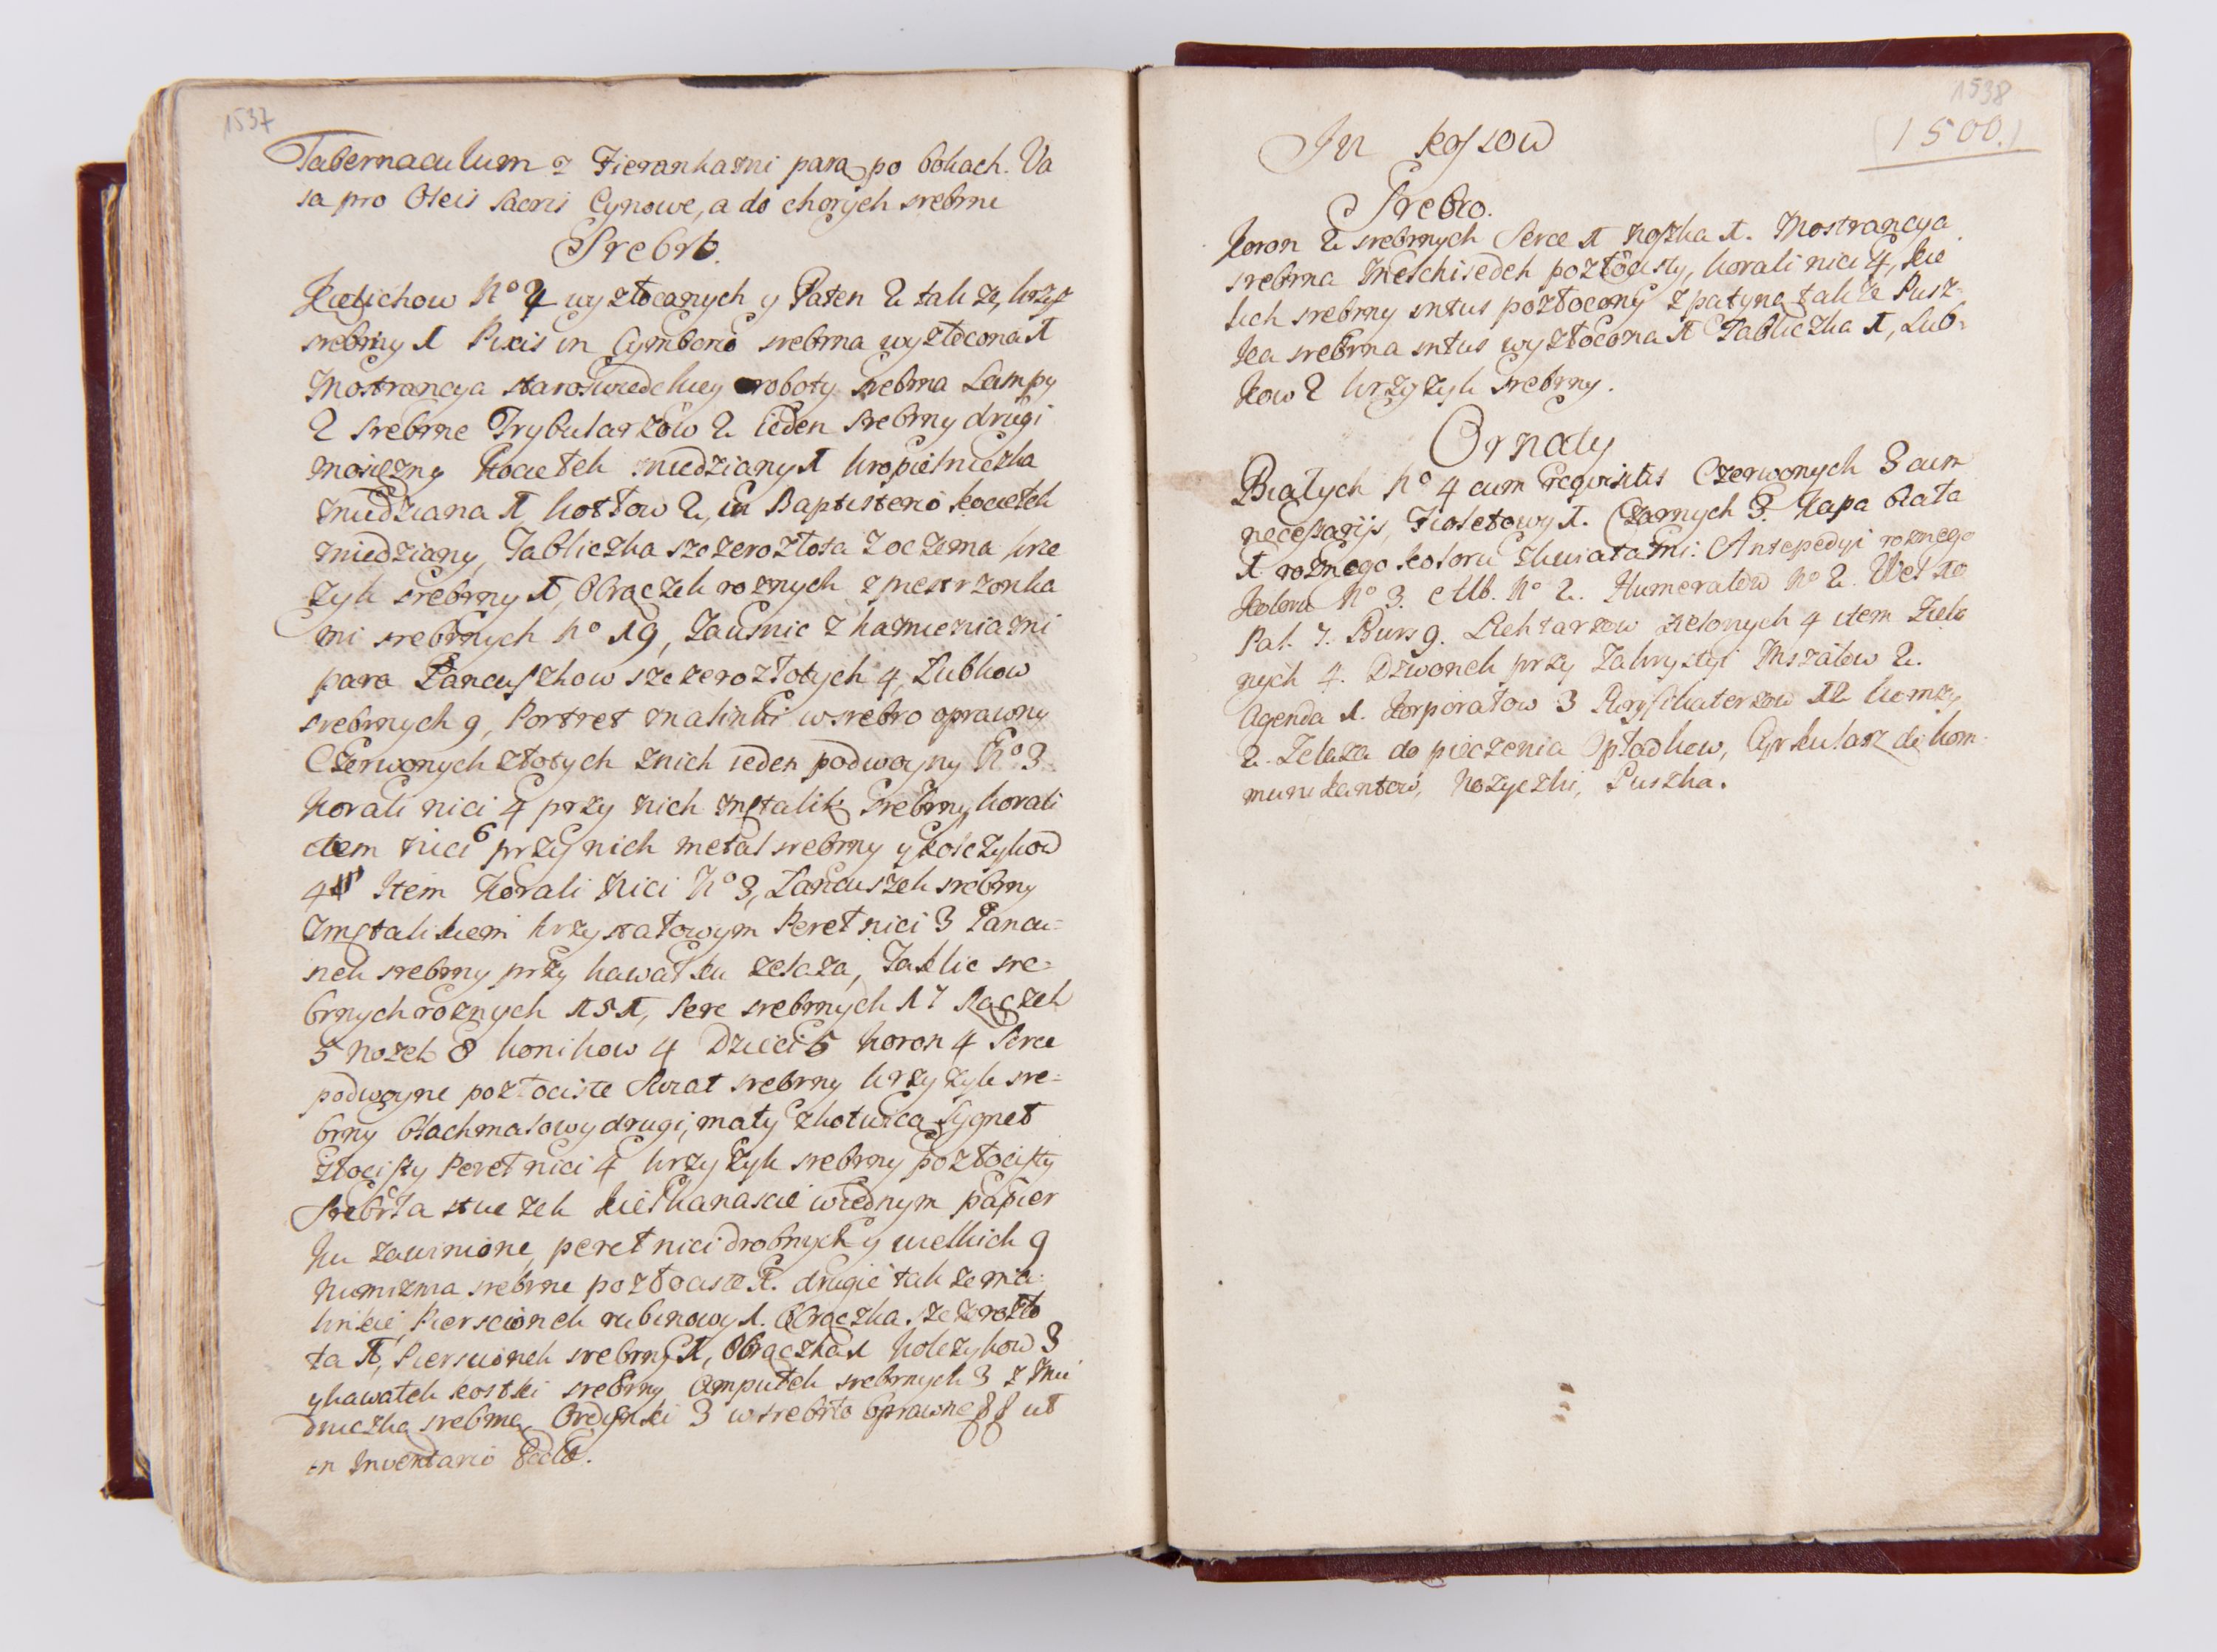 1537
Tabernaculum z Firankami para po bokach. Va
sa pro Oleis Sacris Cynowe, a do chorych srebrne
Srebro.
Kielichow No 4 wyzłocanych y Paten 2 takze, krzyz
srebrny 1 Pixis in Cymborio srebrna wyzłocona 1
Mostrancya staroswiedckiey roboty srebrna Lampy
2 srebrne Trybularzow 2 ieden srebrny drugi
mosięzny Kociełek miedziany 1 kropielniczka
miedziana 1, kotłow 2, in Baptisterio kociełek
miedziany, Tabliczka szczerozłota z oczema krze
zyk srebrny 1, Obrączek roznych z piestrzonka
mi srebrnych No 19, Zausnic z kamieniami
para Łancuszkow szczerozłotych 4, Lubkow
srebrnych 9, Portret malinki w srebro oprawny
Czerwonych złotych z nich ieden podwoyny No 3
Korali nici 4 przy nich metalik srebrny, korali
item nici 6 przy nich metal srebrny y kolczykow
4 Item Korali Nici No 3, Łancuszek srebrny
z metalikiem krzyształowym Pereł nici 3 Łancu=
nek srebrny przy kawałku zelaza, Tablic sre=
brnych roznych 151, Serc srebrnych 17 Rączek
5 Nozek 8 konikow 4 Dzieci 6 Koron 4 Serce
podwoyne pozłociste Kwiat srebrny krzyzyk sre=
brny blachmalowy drugi, mały z kotwicą Sygnet
złocisty Pereł nici 4 krzyzyk srebrny pozłocisty
Srebła sztuczek kielkanascie w iednym papier
ku zawinione, pereł nici drobnych y wielkich 9
Numizma srebrne pozłociste 1. drugie takze ma=
linkie, Pierscionek rubinowy 1. Obrączka szczerozło
ta 1, Pierscionek srebrny 1, Obrączka 1 Kolczykow 3
y kawałek kostki srebrny Ampułek srebrnych 3 z Mie
dniczką srebrną, Ordynki 3 w srebro oprawne ut
in Inventario Ecclae.
1538
(1500.)
In Kossow
Srebro.
Koron 2 srebrnych Serce 1 Noszka 1. Mostrancya
srebrna Melchisedek pozłocisty, korali nici 4, Kie
lich srebrny intus pozłocony z patyną takze Pusz=
ka srebrna intus wyzłocona 1 Tabliczka 1, Lub=
kow 2 krzyzyk srebrny.
Ornaty
Białych No 4 cum requisitis Czerwonych 3 cum
necessarijs, Fioletowy 1. Czarnych 3. Kapa biała
1 roznego koloru z kwiatami. Antepedyi roznego
koloru No 3. Alb. No 2. Humerałow No 2. Wel 10
Pal. 7. Burs 9. Lichtarzow zielonych 4 item Zielo
nych 4. Dzwonek przy Zakrystyi Mszałow 2.
Agenda 1. Korporałow 3 Puryfikaterzow 12 komzy
2. Zelaza do pieczenia Opładkow, Cyrkularz do kom=
munikantow, Nozyczki, Puszka.